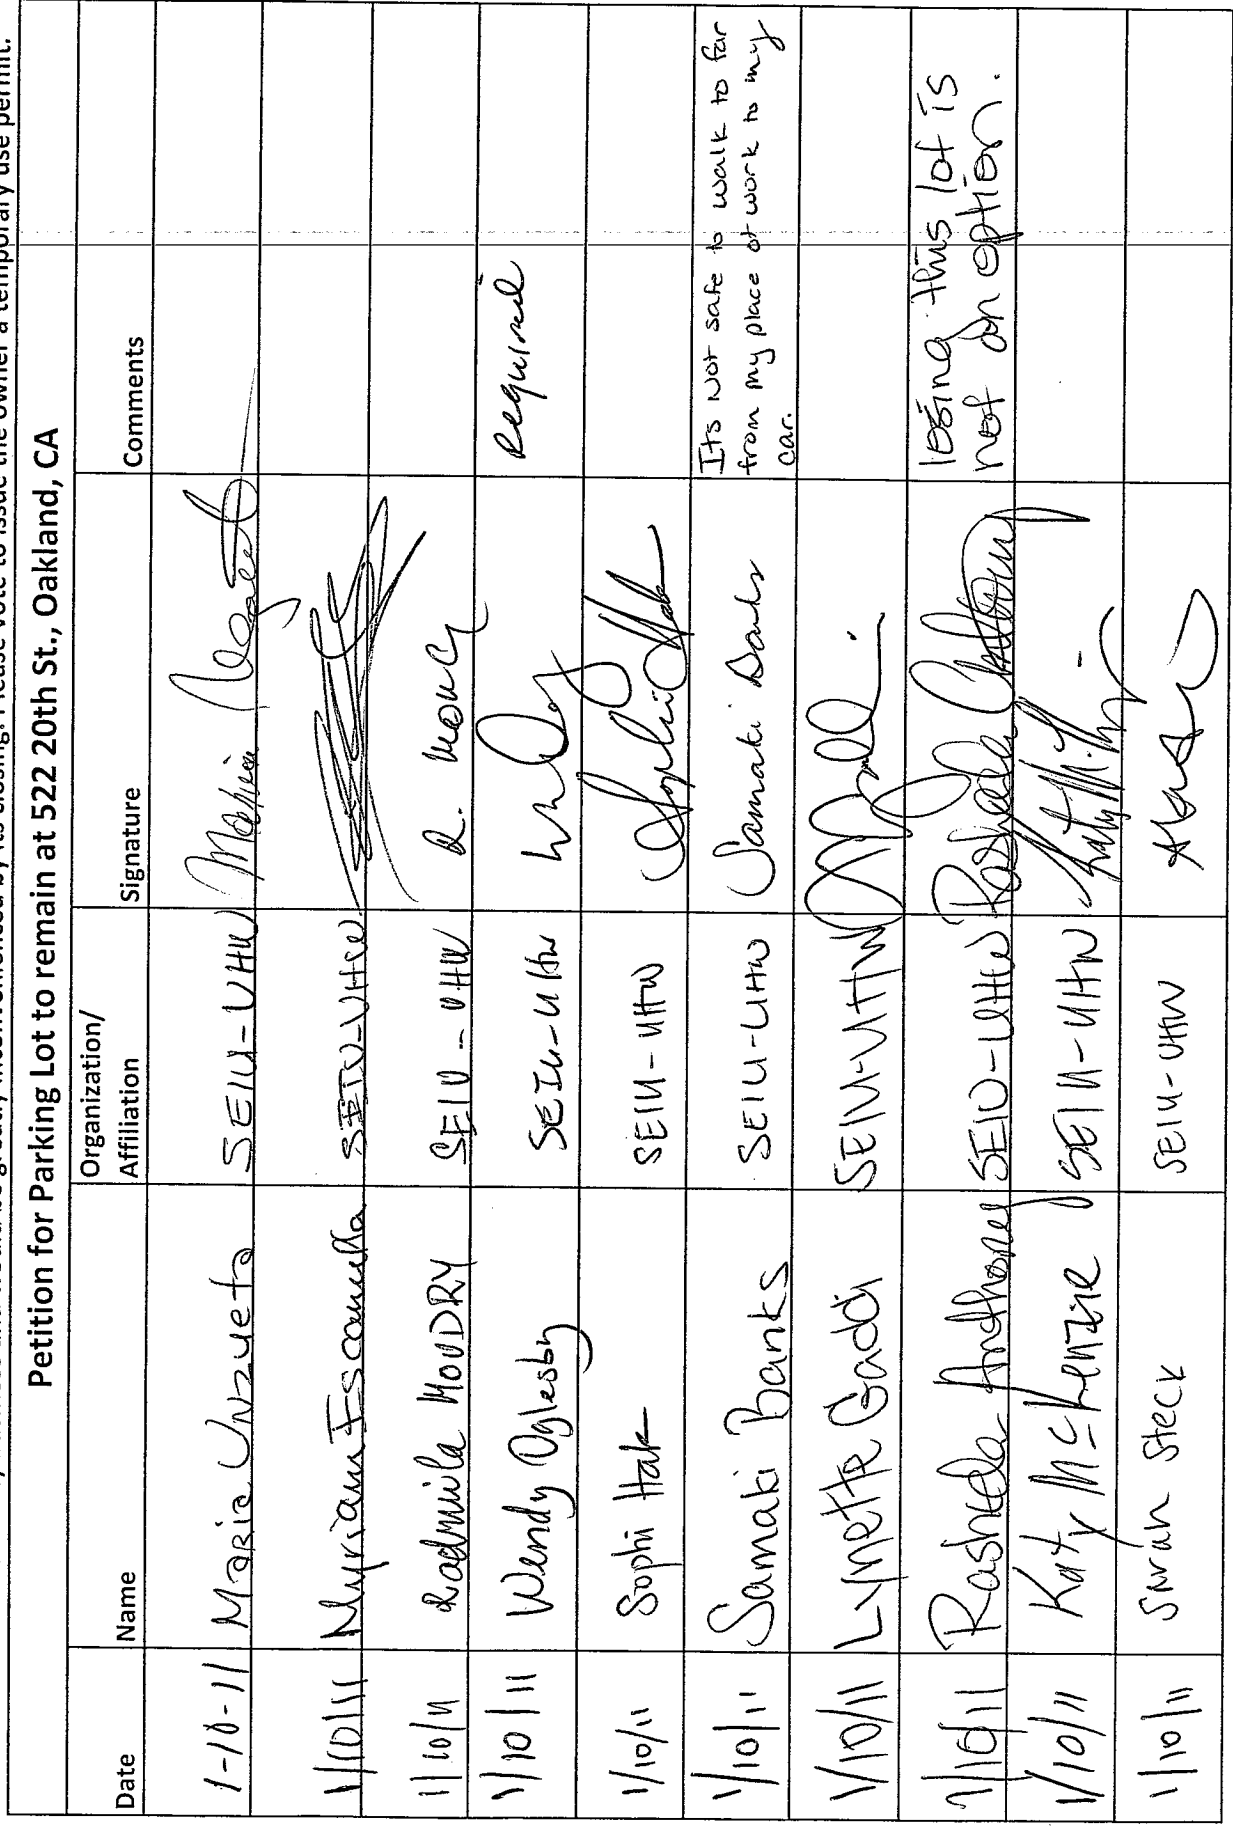 greatly inconvenienced by its closing. Please vote to issue the owner a temporary use permit.
Petition for Parking Lot to remain at 522 20th St., Oakland, CA
Date Name Organization/ Affiliation Signature Comments
1-10-11 Maria Unzueta SEIU-UHW
1/10/11 Myriam Escamilla SEIU-UHW
1/10/11 Radmila MOUDRY SEIU-UHW
1/10/11 Wendy Oglesby SEIU-UHW Required
1/10/11 Sophi Hak SEIU-UHW
1/10/11 Samaki Banks SEIU-UHW Samaki Banks Its Not safe to walk to far
from my place of work to my
car.
1/10/11 Lynette Gaddi SEIU-UHW
1/10/11 Rasheda Anthony SEIU-UHW Rasheda Anthony losing this lot is
not an option.
1/10/11 Katy McKenzie SEIU-UHW
1/10/11 Sarah Steck SEIU-UHW